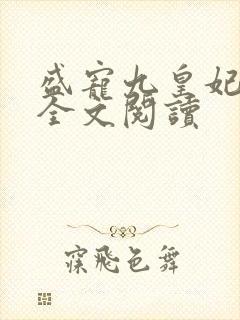 盛寵九皇妃
全文閱讀
寐飛色舞